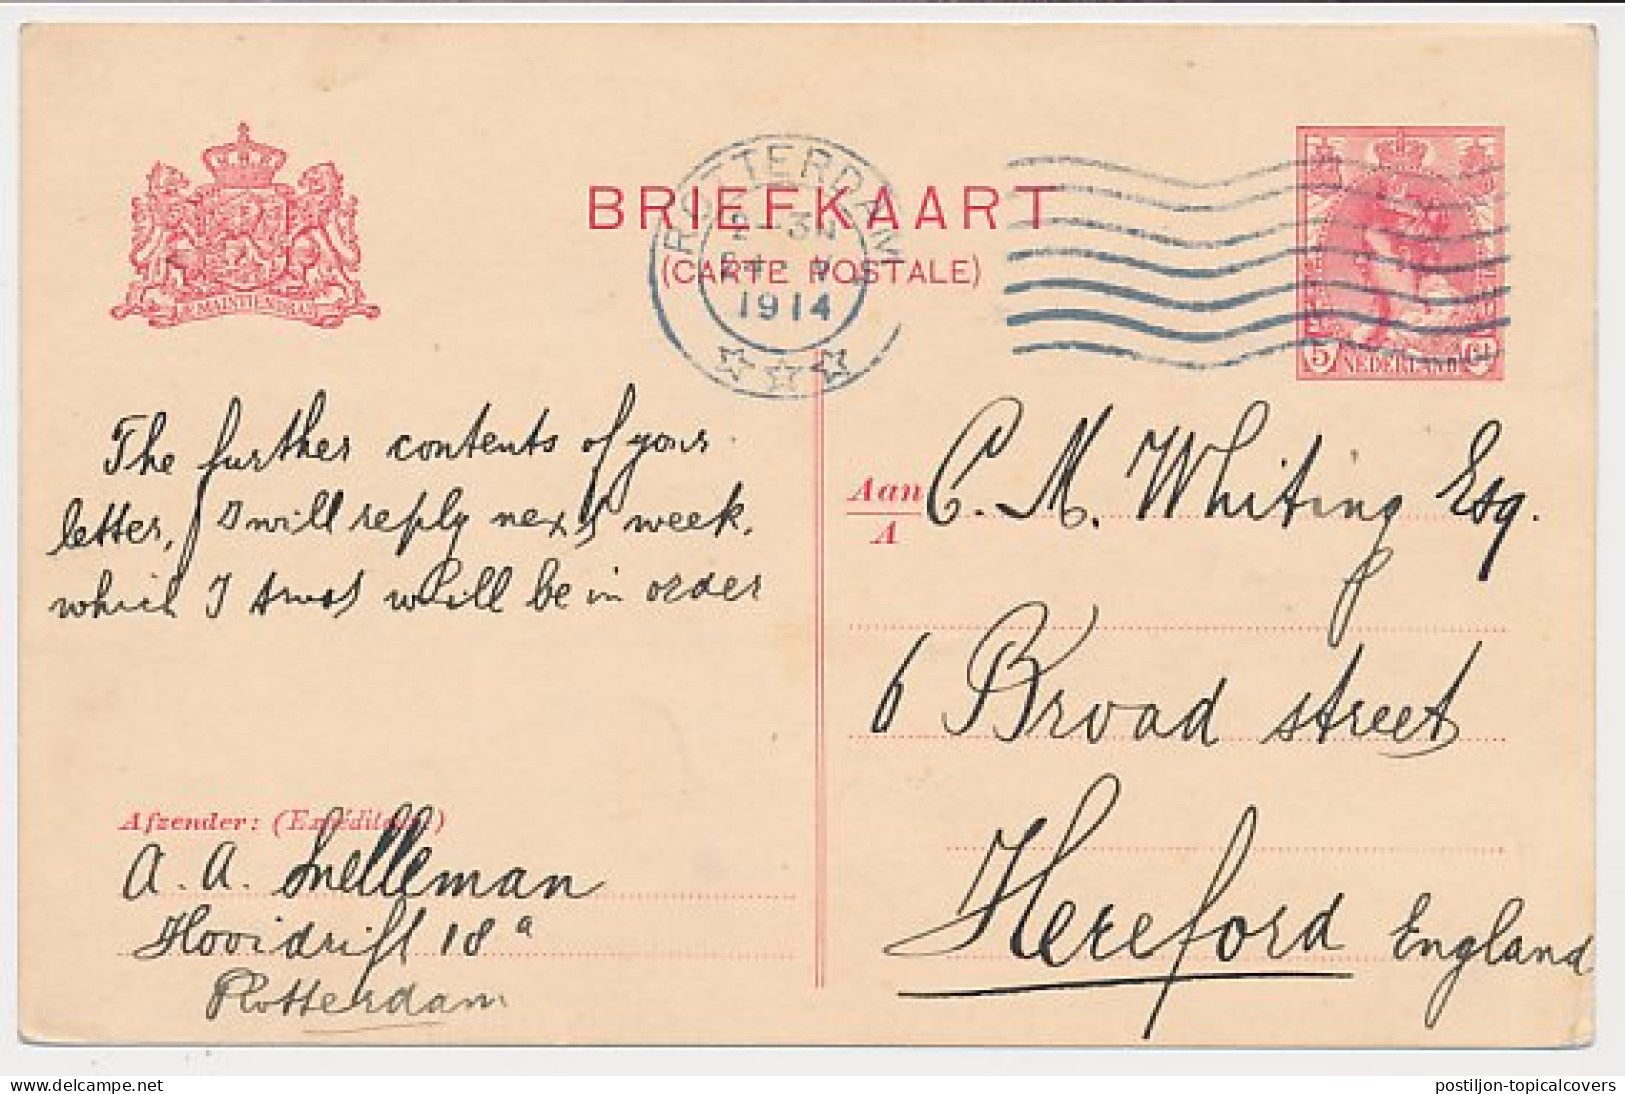 BRIEFKAART
(CARTE POSTALE)
ROTTERDAM
2-3N
1914
JE MAINTIENDRAI
5 NEDERLAND Ct
The further contents of your
letter, I will reply next week.
which I trust will be in order
Aan
A
C. M. Whiting Esq.
6 Broad street
Hereford England
Afzender: (Expéditeur)
A. A. Snelleman
18a
Rotterdam
© 2000-2024 Delcampe International srl
postiljon-topicalcovers